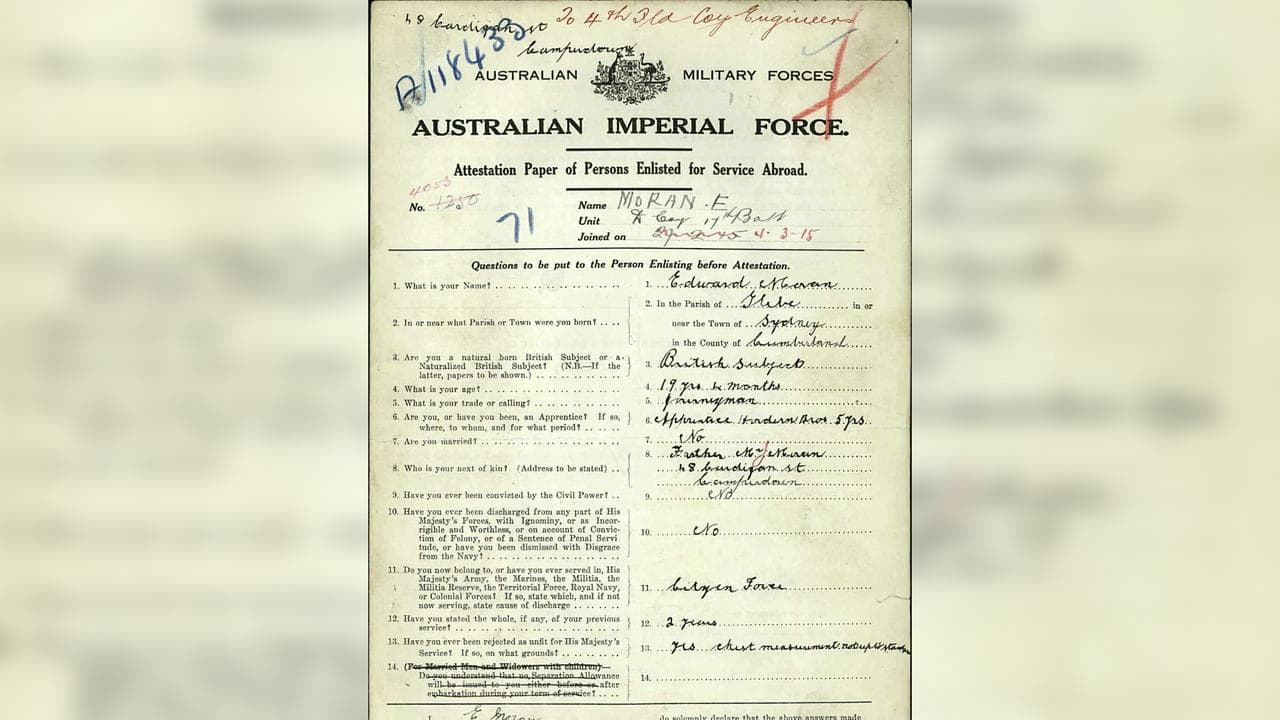 48 Cardigan st To 4th Fld Coy Engineers
Camperdown
A118433
AUSTRALIAN MILITARY FORCES
AUSTRALIAN IMPERIAL FORCE.
Attestation Paper of Persons Enlisted for Service Abroad.
4053
No. 1250
71
Name MORAN . E
Unit D Coy 17th Batt
Joined on 4-3-15
Questions to be put to the Person Enlisting before Attestation.
1. What is your Name? 1. Edward Moran
2. In or near what Parish or Town were you born? 2. In the Parish of Glebe in or
near the Town of Sydney
in the County of Cumberland
3. Are you a natural born British Subject or a
Naturalized British Subject? (N.B.—If the
latter, papers to be shown.) 3. British Subject
4. What is your age? 4. 19 yrs 4 months
5. What is your trade or calling? 5. Journeyman
6. Are you, or have you been, an Apprentice? If so,
where, to whom, and for what period? 6. Apprentice Hordern Bros. 5 yrs
7. Are you married? 7. No
8. Who is your next of kin? (Address to be stated) 8. Father Moran
48 Cardigan st
Camperdown
9. Have you ever been convicted by the Civil Power? 9. No
10. Have you ever been discharged from any part of His
Majesty's Forces, with Ignominy, or as Incor-
rigible and Worthless, or on account of Convic-
tion of Felony, or of a Sentence of Penal Servi-
tude, or have you been dismissed with Disgrace
from the Navy? 10. No
11. Do you now belong to, or have you ever served in, His
Majesty's Army, the Marines, the Militia, the
Militia Reserve, the Territorial Force, Royal Navy,
or Colonial Forces? If so, state which, and if not
now serving, state cause of discharge 11. Cityzen Force
12. Have you stated the whole, if any, of your previous
service? 12. 2 years
13. Have you ever been rejected as unfit for His Majesty's
Service? If so, on what grounds? 13. yes chest measurement not up to
14. (For Married Men and Widowers with children)
Do you understand that no Separation Allowance
will be issued to you either before or after
embarkation during your term of service? 14.
I, E Moran do solemnly declare that the above answers made